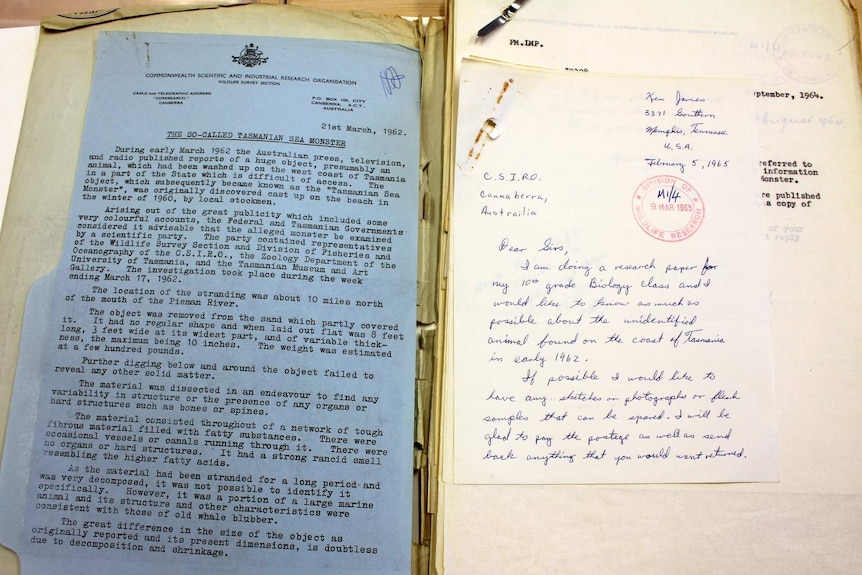 COMMONWEALTH SCIENTIFIC AND INDUSTRIAL RESEARCH ORGANISATION
WILDLIFE SURVEY SECTION
CABLE AND TELEGRAPHIC ADDRESS:
CANBERRA
P.O. BOX 109, CITY
CANBERRA, A.C.T.,
AUSTRALIA
21st March, 1962.
THE SO-CALLED TASMANIAN SEA MONSTER
During early March 1962 the Australian press, television,
and radio published reports of a huge object, presumably an
animal, which had been washed up on the west coast of Tasmania
in a part of the State which is difficult of access. The
object, which subsequently became known as the "Tasmanian Sea
Monster", was originally discovered cast up on the beach in
the winter of 1960, by local stockmen.
Arising out of the great publicity which included some
very colourful accounts, the Federal and Tasmanian Governments
considered it advisable that the alleged monster be examined
by a scientific party. The party contained representatives
of the Wildlife Survey Section and Division of Fisheries and
Oceanography of the C.S.I.R.O., the Zoology Department of the
University of Tasmania, and the Tasmanian Museum and Art
Gallery. The investigation took place during the week
ending March 17, 1962.
The location of the stranding was about 10 miles north
of the mouth of the Pieman River.
The object was removed from the sand which partly covered
it. It had no regular shape and when laid out flat was 8 feet
long, 3 feet wide at its widest part, and of variable thick-
ness, the maximum being 10 inches. The weight was estimated
at a few hundred pounds.
Further digging below and around the object failed to
reveal any other solid matter.
The material was dissected in an endeavour to find any
variability in structure or the presence of any organs or
hard structures such as bones or spines.
The material consisted throughout of a network of tough
fibrous material filled with fatty substances. There were
occasional vessels or canals running through it. There were
no organs or hard structures. It had a strong rancid smell
resembling the higher fatty acids.
As the material had been stranded for a long period and
was very decomposed, it was not possible to identify it
specifically. However, it was a portion of a large marine
animal and its structure and other characteristics were
consistent with those of old whale blubber.
The great difference in the size of the object as
originally reported and its present dimensions, is doubtless
due to decomposition and shrinkage.
PM.IMP.
eptember, 1964.
referred to
information
onster.
re published
a copy of
Ken James
3371 Southern
Memphis, Tennessee
U.S.A.
February 5, 1965
C.S.I.R.O.
Cannaberra,
Austrailia
DIVISION OF
M1/4
9 MAR 1965
WILDLIFE RESEARCH
Dear Sirs,
I am doing a research paper for
my 10th grade Biology class and I
would like to know as much as
possible about the unidentified
animal found on the coast of Tasmania
in early 1962.
If possible I would like to
have any sketches or photographs or flesh
samples that can be spared. I will be
glad to pay the postage as well as send
back anything that you would want returned.